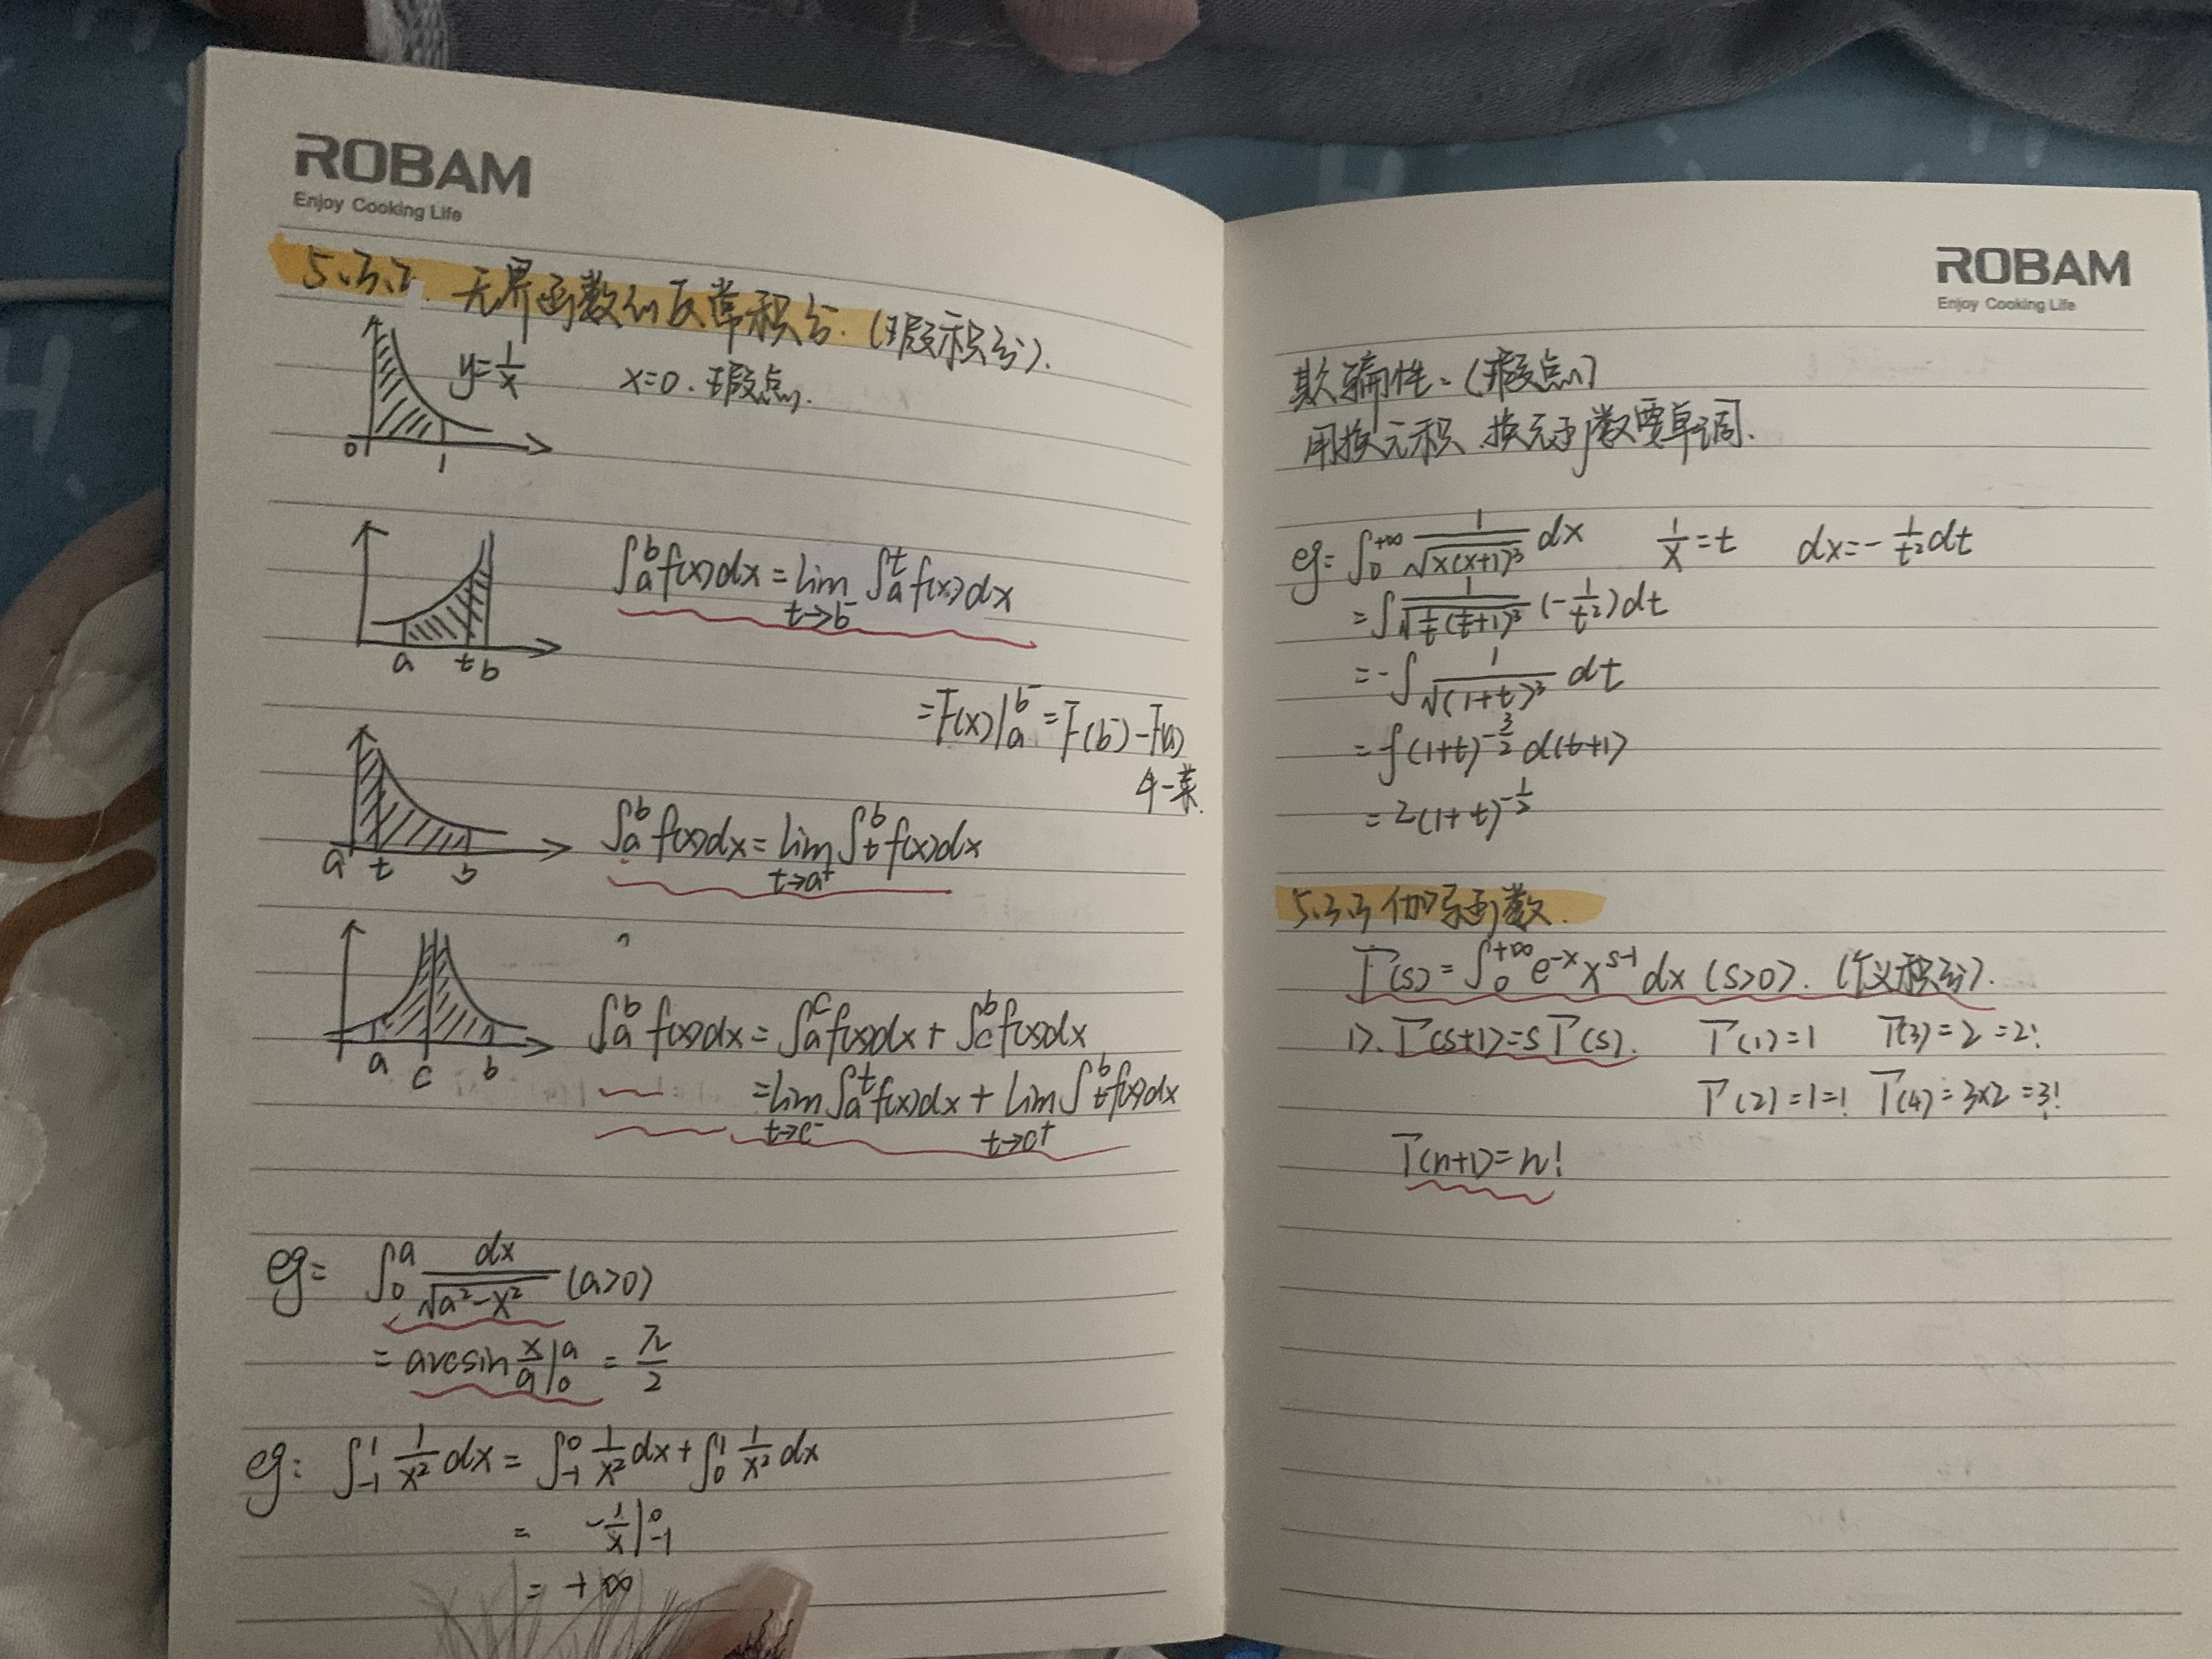 ROBAM
Enjoy Cooking Life
5.3.2. 无界函数的反常积分.(瑕积分).
y=1/x x=0.瑕点.
0 1
∫_a^b f(x)dx=lim_{t→b⁻}∫_a^t f(x)dx
a t b
=F(x)|_a^{b⁻}=F(b⁻)-F(a)
牛-莱.
∫_a^b f(x)dx=lim_{t→a⁺}∫_t^b f(x)dx
a t b
∫_a^b f(x)dx=∫_a^c f(x)dx+∫_c^b f(x)dx
a c b
=lim_{t→c⁻}∫_a^t f(x)dx+lim_{t→c⁺}∫_t^b f(x)dx
eg: ∫_0^a dx/√(a²-x²) (a>0)
=arcsin x/a|_0^a=π/2
eg: ∫_{-1}^1 1/x² dx=∫_{-1}^0 1/x² dx+∫_0^1 1/x² dx
= -1/x|_{-1}^0
=+∞
ROBAM
Enjoy Cooking Life
欺骗性.(瑕点)
用换元积.换元函数要单调.
eg: ∫_0^{+∞} 1/√(x(x+1)³) dx 1/x=t dx=-1/t² dt
=∫1/√(1/t(1/t+1)³)(-1/t²)dt
=-∫1/√((1+t)³) dt
=∫(1+t)^{-3/2}d(t+1)
=2(1+t)^{-1/2}
5.3.3 伽马函数.
Γ(s)=∫_0^{+∞}e^{-x}x^{s-1}dx (s>0).(广义积分).
1).Γ(s+1)=sΓ(s). Γ(1)=1 Γ(3)=2=2!
Γ(2)=1=! Γ(4)=3×2=3!
Γ(n+1)=n!